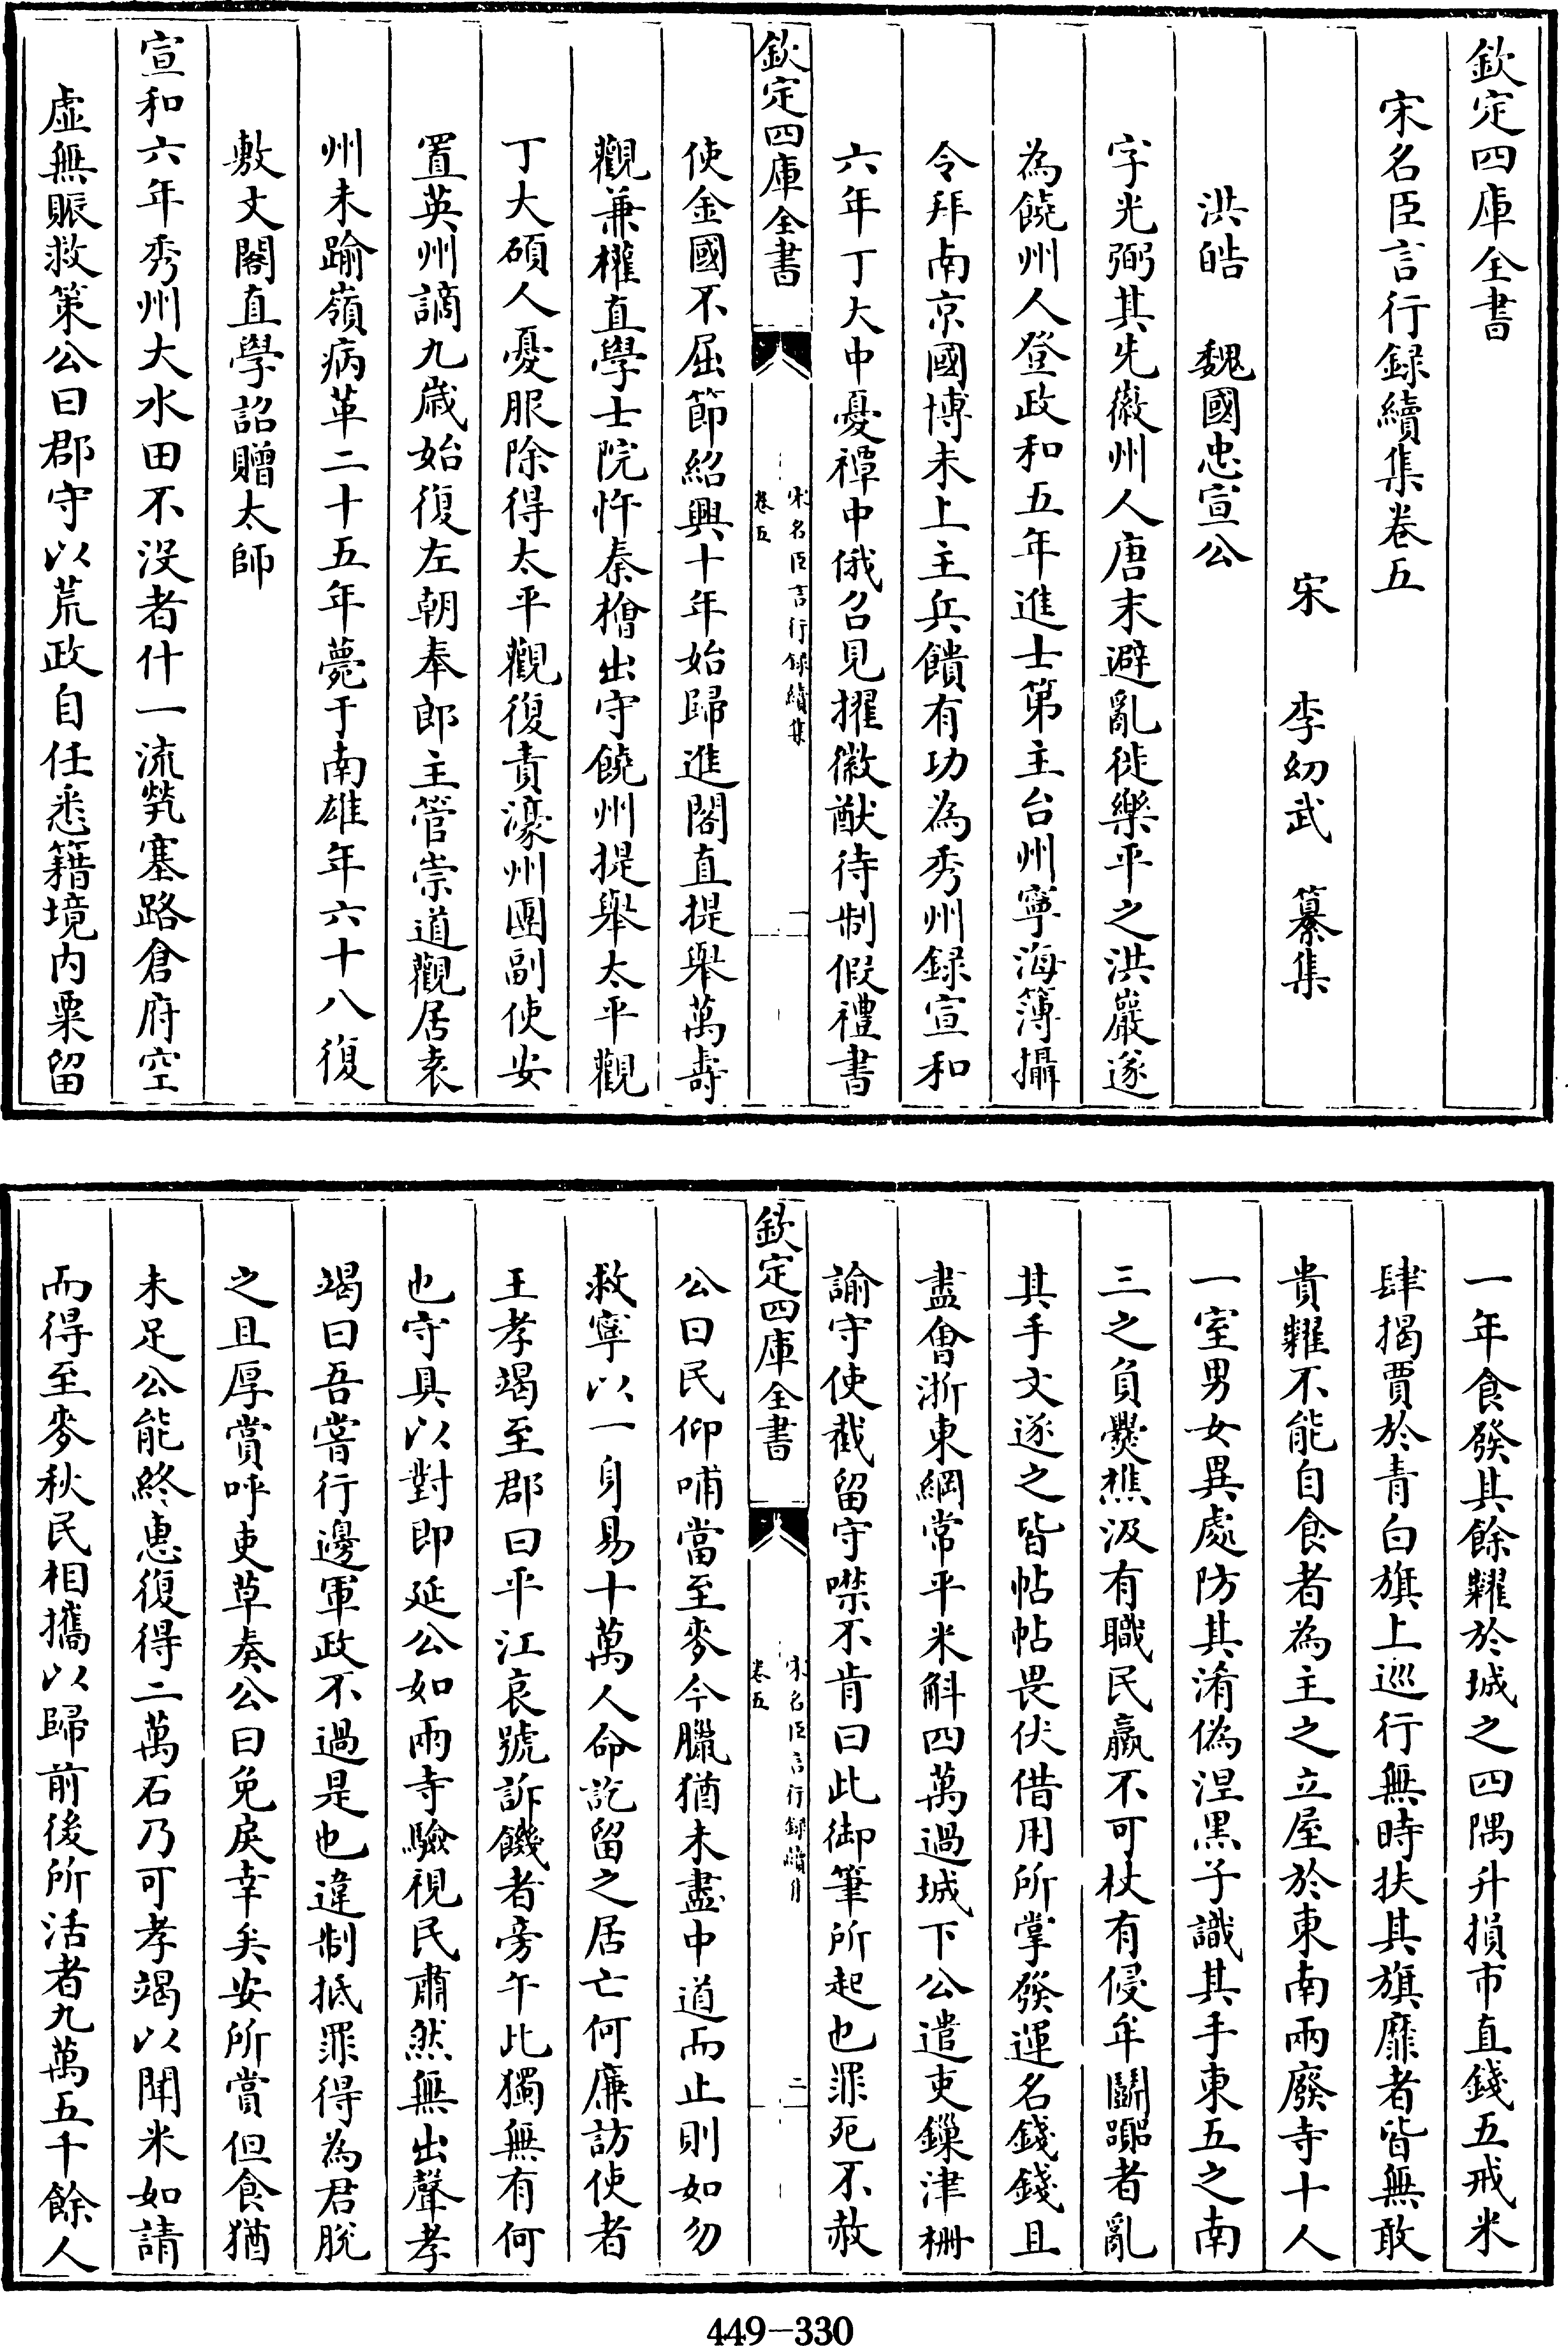 欽定四庫全書
宋名臣言行録續集卷五
宋 李幼武 纂集
洪皓 魏國忠宣公
字光弼其先徽州人唐末避亂徙樂平之洪巖遂
為饒州人登政和五年進士第主台州寧海簿攝
令拜南京國博未上主兵饋有功為秀州録宣和
六年丁大中憂禫中俄召見擢徽猷待制假禮書
欽定四庫全書
宋名臣言行録續集
卷五
一
使金國不屈節紹興十年始歸進閣直提舉萬壽
觀兼權直學士院忤秦檜出守饒州提舉太平觀
丁大碩人憂服除得太平觀復責濠州團副使安
置英州謫九歲始復左朝奉郎主管崇道觀居袁
州未踰嶺病革二十五年薨于南雄年六十八復
敷文閣直學詔贈太師
宣和六年秀州大水田不沒者什一流煢塞路倉府空
虛無賑救策公曰郡守以荒政自任悉籍境内粟留
一年食發其餘糶於城之四隅升損市直錢五戒米
肆揭賈於青白旗上巡行無時扶其旗靡者皆無敢
貴糶不能自食者為主之立屋於東南兩廢寺十人
一室男女異處防其淆偽涅黒子識其手東五之南
三之負爨樵汲有職民羸不可杖有侵牟鬭囂者亂
其手文逐之皆帖帖畏伏借用所掌發運名錢錢且
盡會浙東綱常平米斛四萬過城下公遣吏鏁津柵
諭守使截留守噤不肯曰此御筆所起也罪死不赦
欽定四庫全書
宋名臣言行録續集
卷五
二
公曰民仰哺當至麥今臘猶未盡中道而止則如勿
救寧以一身易十萬人命訖留之居亡何廉訪使者
王孝竭至郡曰平江哀號訴饑者旁午此獨無有何
也守具以對即延公如兩寺驗視民肅然無出聲孝
竭曰吾嘗行邊軍政不過是也違制抵罪得為君脫
之且厚賞呼吏草奏公曰免戾幸矣安所賞但食猶
未足公能終惠復得二萬石乃可孝竭以聞米如請
而得至麥秋民相攜以歸前後所活者九萬五千餘人
449-330